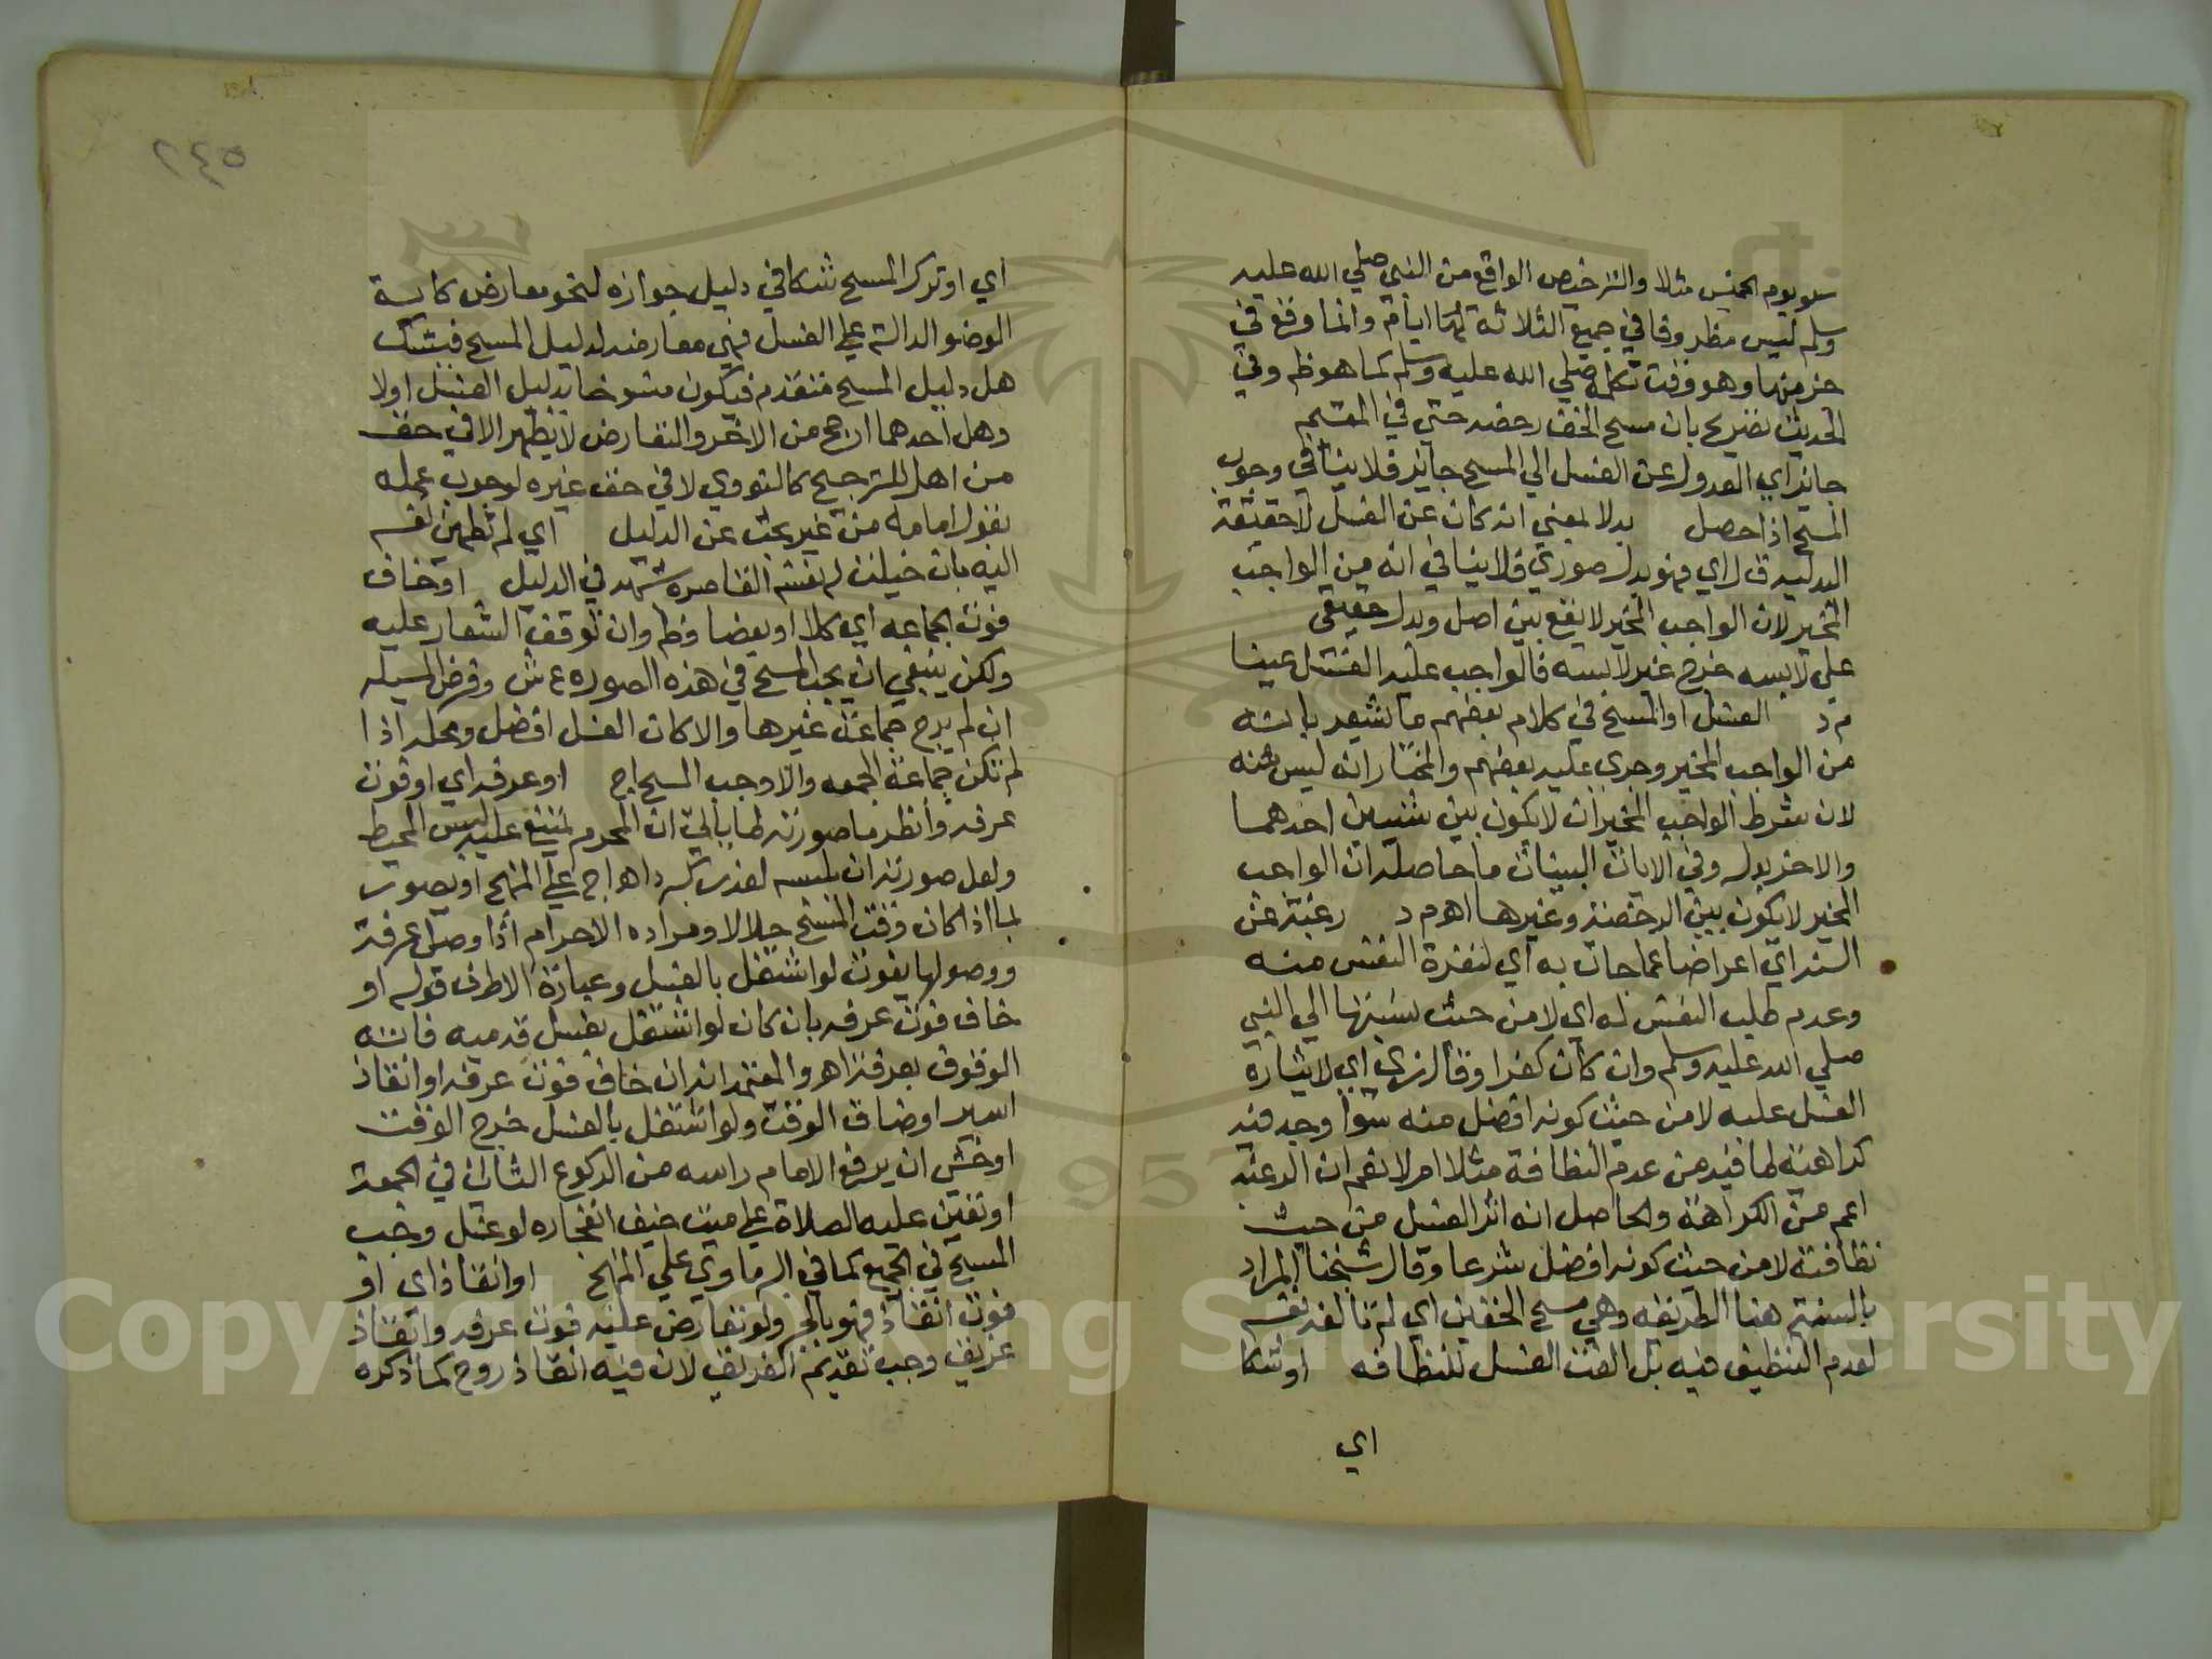 سلو يوم الخميس مثلا والترخيص الواقع من النبي صلي الله عليه
وسلم ليس مظروفا في جميع الثلاثة ايام وانما وقع في
جزء منها وهو وقت تكلمه صلي الله عليه وسلم كما هو ظ وفي
الحديث تصريح بان مسح الخف رخصه حتي في المقيم
جايز اي العدول عن الغسل الي المسح جايز فلا ينافي وجوب
المسح اذا حصل بدلا بمعني انه كان عن الغسل لا حقيقة
البدليه ق ل اي فهو بدل صوري فلا ينافي انه من الواجب
المخير لان الواجب المخير لا يقع بين اصل وبدل حقيقي
علي لابسه خرج غير لابسه فالواجب عليه الغسل عينا
م د الغسل او المسح في كلام بعضهم ما يشعر بانه
من الواجب المخير وجري عليه بعضهم والمختار انه ليس منه
لان شرط الواجب المخير ان لا يكون بين شيئين احدهما
والاخر بدل وفي الايات البينات ما حاصله ان الواجب
المخير لا يكون بين الرخصة وغيرها اهم د رغبة عن
السنة اي اعراضا عما جات به اي لنفرة النفس منه
وعدم طلب النفس له اي لا من حيث نسبتها الي النبي
صلي الله عليه وسلم وان كان كفرا وقال زي اي لايثاره
الغسل عليه لا من حيث كونه افضل منه سوا وجد فيه
كراهية لما فيه من عدم النظافة مثلا ام لا نعم ان الرغبة
اعم من الكراهة والحاصل انه اثر الغسل من حيث
نظافته لا من حيث كونه افضل شرعا وقال شيخنا المراد
بالسنة هنا الطريقة وهي مسح الخفين اي لم تالفه نفسه
لعدم التنظيف فيه بل الفت الغسل للنظافه او شكا
اي
٢٤٥
اي او ترك المسح شكا في دليل جوازه لنحو معارض كاية
الوضو الدالة علي الغسل فهي معارضة لدليل المسح فيشك
هل دليل المسح متقدم فيكون منسوخا بدليل الغسل اولا
وهل احدهما ارجح من الاخر والتعارض لا يظهر الا في حق
من اهل الترجيح كالنووي لا في حق غيره لوجوب عمله
بقول امامه من غير بحث عن الدليل اي لم تطمئن نفسه
اليه بان خيلت له نفسه القاصره شبهة في الدليل او خاف
فوت الجماعه اي كلا او بعضا وظ وان توقف الشعار عليه
ولكن ينبغي ان يجب المسح في هذه الصوره ع ش وفرض المسيله
ان لم يرج جماعة غيرها والا كان الغسل افضل ومحله اذا
لم تكن جماعة الجمعه والا وجب المسح اج او عرفه اي او فوت
عرفه وانظر ما صورته لما ياتي ان المحرم يمتنع عليه لبس المحيط
ولعل صورته ان يلبسه لعذر كبرد اهو اج علي المنهج او يصور
بما اذا كان وقت المسح حلالا ومراده الاحرام اذا وصل عرفة
ووصولها يفوت لو اشتغل بالغسل وعبارة الاطرف قوله او
خاف فوت عرفه بان كان لو اشتغل بغسل قدميه فاته
الوقوف بعرفة اهو والمعتمد انه ان خاف فوت عرفه او انقاذ
اسير او ضاق الوقت ولو اشتغل بالغسل خرج الوقت
او خشي ان يرفع الامام راسه من الركوع الثاني في الجمعة
او تعين عليه الصلاة علي ميت خيف انفجاره لو غسل وجب
المسح في الجميع كما في البرماوي علي المنهج او انقاذ اي او
فوت انقاذ فهو بالجر ولو تعارض عليه فوت عرفه وانقاذ
غريق وجب تقديم الغريق لان فيه انقاذ روح كما ذكره
Copyright © King Saud University
1957